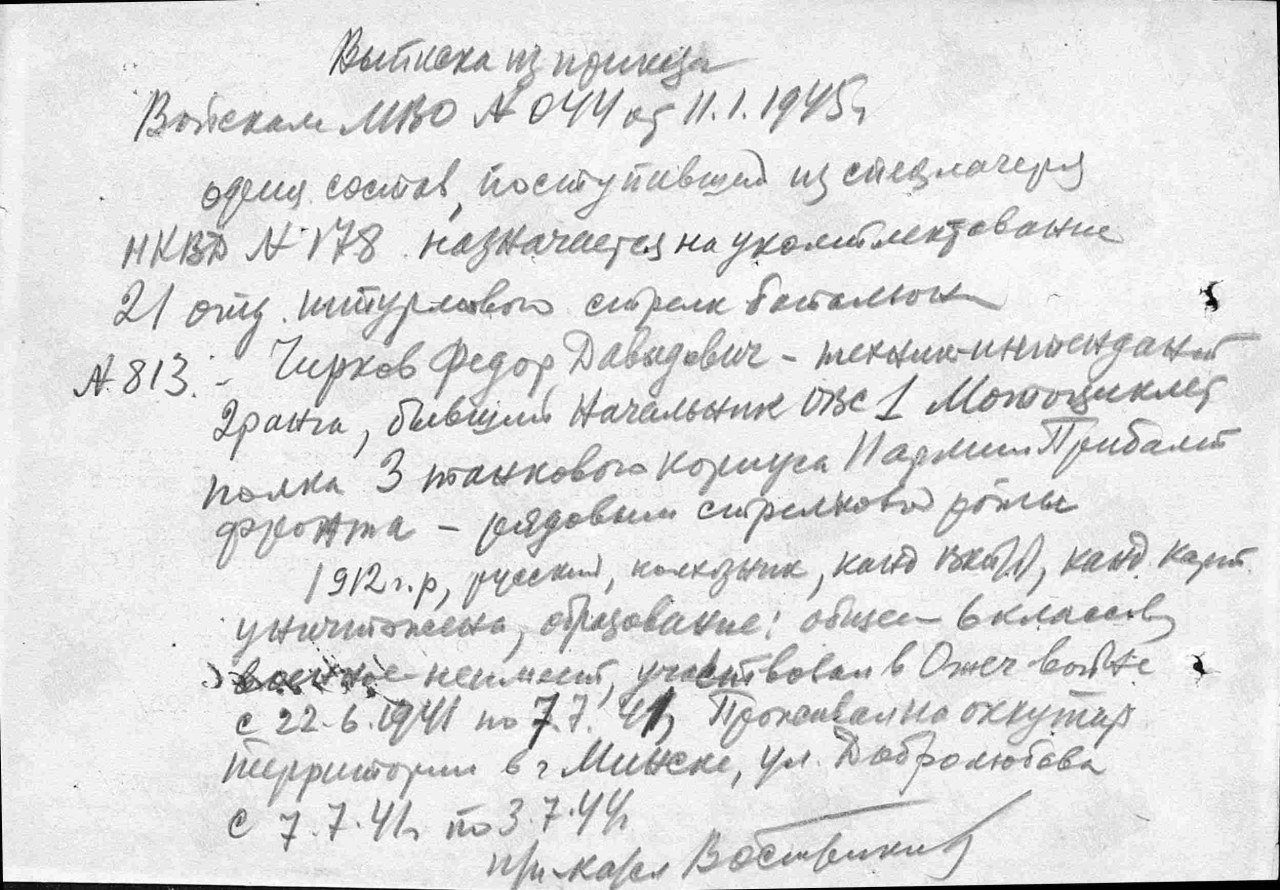 Выписка из приказа
Войскам МВО № 044 от 11.1.1945г
офиц. состав, поступивший из спецлагеря
НКВД № 178 назначается на укомплектование
21 отд. штурмового стрелк батальона
№ 813. - Чирков Федор Давыдович - техник-интендант
2 ранга, бывший Начальник ОВС 1 Мотоциклет
полка 3 танкового корпуса 11 армии Прибалт
фронта - рядовым стрелковой роты
1912 г.р, русский, колхозник, канд ВКП(б), канд. карт.
уничтожена, образование: общее - 6 классов
военное - не имеет, участвовал в Отеч войне
с 22.6.1941 по 7.7.41, Проживал на оккупир
территории в г Минске, ул. Добролюбова
с 7.7.41г по 3.7.44г
Востриков